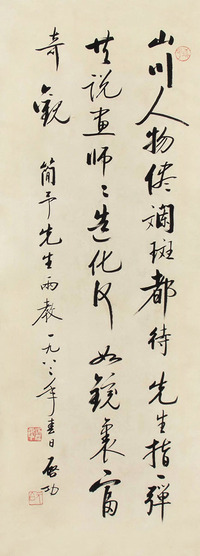 山川人物侭斓斑都待先生指一弹
共说画师〻造化何如镜里富
奇观 简予先生两教 一九八〇年春日 启功